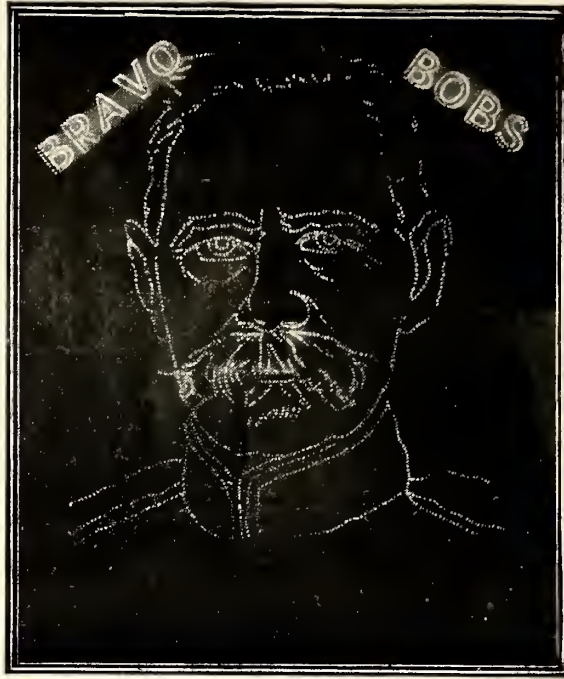 BRAVO
BOBS